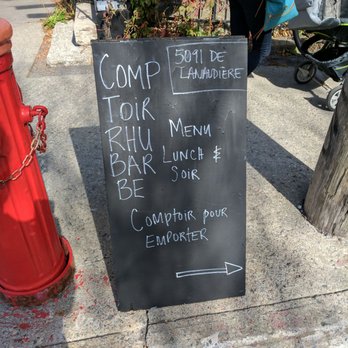 COMP
TOIR
RHU
BAR
BE
5091 DE
LANAUDIÈRE
MENU
LUNCH &
SOIR
COMPTOIR POUR
EMPORTER